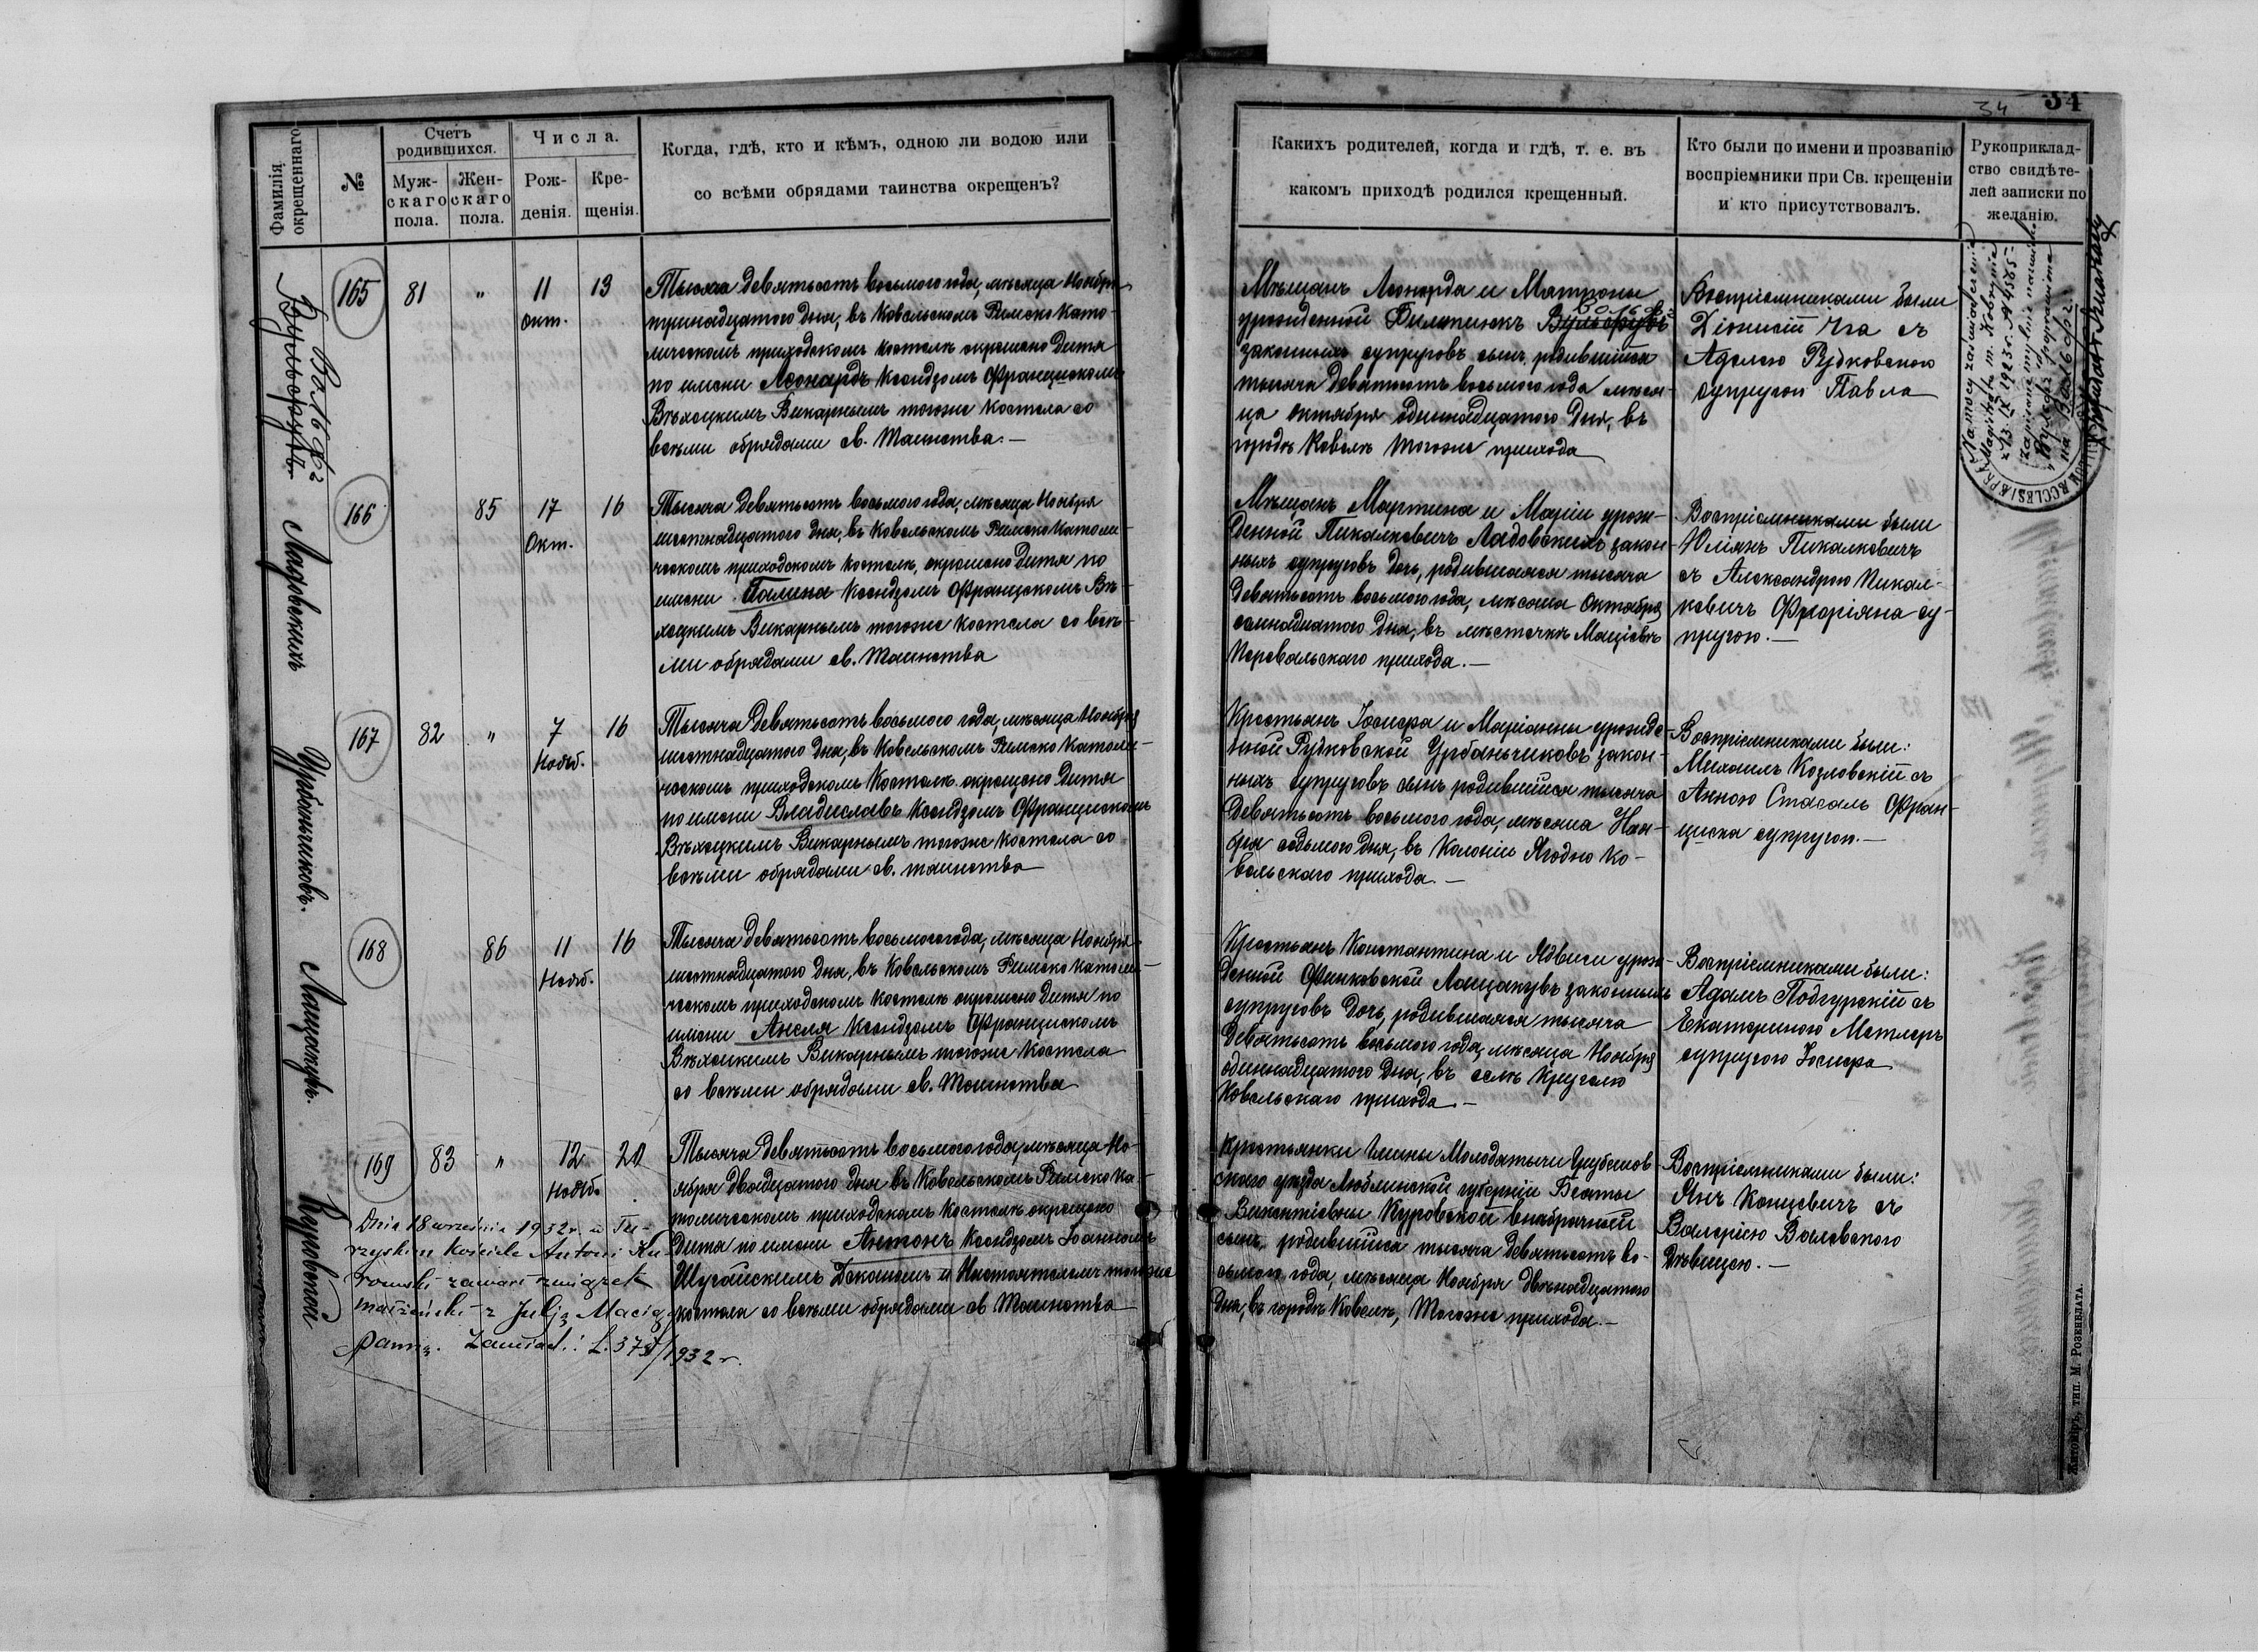 34
34
Фамилія окрещеннаго
№
Счетъ родившихся.
Муж-
скаго
пола.
Жен-
скаго
пола.
Числа.
Рож-
денія.
Кре-
щенія.
Когда, гдѣ, кто и кѣмъ, одною ли водою или
со всѣми обрядами таинства окрещенъ?
Какихъ родителей, когда и гдѣ, т. е. въ
какомъ приходѣ родился крещенный.
Кто были по имени и прозванію
воспріемники при Св. крещеніи
и кто присутствовалъ.
Рукоприклад-
ство свидѣте-
лей записки по
желанію.
165
81
"
11
окт.
13
Тысяча девятьсотъ восьмого года, мѣсяца Ноября
тринадцатого дня, въ Ковельскомъ Римско Като-
лическомъ приходскомъ костелѣ окрещено дитя
по имени Леонардъ Ксендзомъ Францискомъ
Вѣхоцкимъ Викарнымъ тогоже костела со
всѣми обрядами св. Таинства.—
Мѣщанъ Леонарда и Матроны
урожденной Филипюкъ
законныхъ супруговъ сынъ, родившійся
тысяча девятьсотъ восьмого года мѣся-
ца октября одиннадцатого дня, въ
городѣ Ковелѣ тогоже прихода
Воспріемниками были
Діонисій Чга съ
Аделею Рудковскою
супругой Павла
166
85
17
Окт.
16
Ладовскихъ
Тысяча девятьсотъ восьмого года, мѣсяца Ноября
шестнадцатого дня, въ Ковельскомъ Римско Католи-
ческомъ приходскомъ костелѣ, окрещено дитя по
имени Галина Ксендзомъ Францискомъ Вѣ-
хоцкимъ Викарнымъ тогоже костела со всѣ-
ми обрядами св. Таинства
Мѣщанъ Мартина и Маріи урож-
денной Пикалкевичъ Ладовскихъ закон-
ныхъ супруговъ дочь, родившаяся тысяча
девятьсотъ восьмого года, мѣсяца Октября
семнадцатого дня, въ мѣстечкѣ Маціевѣ
прихода.—
Воспріемниками были
Юліянъ Пикалкевичъ
съ Александрою Пикал-
кевичъ Флоріяна су-
пругою.—
167
82
"
7
Нояб.
16
Урбаньчиковъ.
Тысяча девятьсотъ восьмого года, мѣсяца Ноября
шестнадцатого дня, въ Ковельскомъ Римско Католи-
ческомъ приходскомъ Костелѣ окрещено дитя
по имени Владиславъ Ксендзомъ Францискомъ
Вѣхоцкимъ Викарнымъ тогоже костела со
всѣми обрядами св. таинства
Крестьянъ Іосифа и Маріанны урожде-
нной Рудковской Урбаньчиковъ закон-
ныхъ супруговъ сынъ родившійся тысяча
девятьсотъ восьмого года, мѣсяца Ноя-
бря седьмого дня, въ Колоніи Ягодно Ко-
вельскаго прихода.—
Воспріемниками были:
Михаилъ Козловскій съ
Анною Стасалъ Фран-
циска супругою.—
168
86
11
Нояб.
16
Лащакувъ.
Тысяча девятьсотъ восьмого года, мѣсяца Ноября
шестнадцатого дня, въ Ковельскомъ Римско Католи-
ческомъ приходскомъ костелѣ окрещено дитя по
имени Анеля Ксендзомъ Францискомъ
Вѣхоцкимъ Викарнымъ тогоже Костела
со всѣми обрядами св. Таинства
Крестьянъ Константина и Ядвиги урож-
денной Финковской Лащакувъ законныхъ
супруговъ дочь, родившаяся тысяча
девятьсотъ восьмого года, мѣсяца Ноября
одиннадцатого дня, въ селѣ
Ковельскаго прихода.—
Воспріемниками были:
Адамъ Подгурскій съ
Екатериною Метлеръ
супругою Іосифа
169
83
"
12
Нояб.
20
Куровской
Тысяча девятьсотъ восьмого года, мѣсяца Но-
ября двадцатого дня въ Ковельскомъ Римско Ка-
толическомъ приходскомъ Костелѣ окрещено
дитя по имени Антонъ Ксендзомъ Іоанномъ
Шугайскимъ Деканомъ и Настоятелемъ тогоже
костела со всѣми обрядами св Таинства
Крестьянки Гмины Молодятычи Грубешов-
скаго уѣзда Люблинской губерніи Беаты
Викентіевны Куровской внѣбрачный
сынъ, родившійся тысяча девятьсотъ во-
сьмого года, мѣсяца Ноября двѣнадцатого
дня, въ городѣ Ковелѣ, тогоже прихода.—
Воспріемниками были:
Янъ Концевичъ съ
Валеріею
Дѣвицею.—
Dnia 18 września 1932 r. w Tu-
rzyskim kościele Antoni Ku-
rowski zawarł związek
małżeński z Julją
panną. Zawiad.: L. 373/1932 r.
Житоміръ, тип. М. Розенблата.